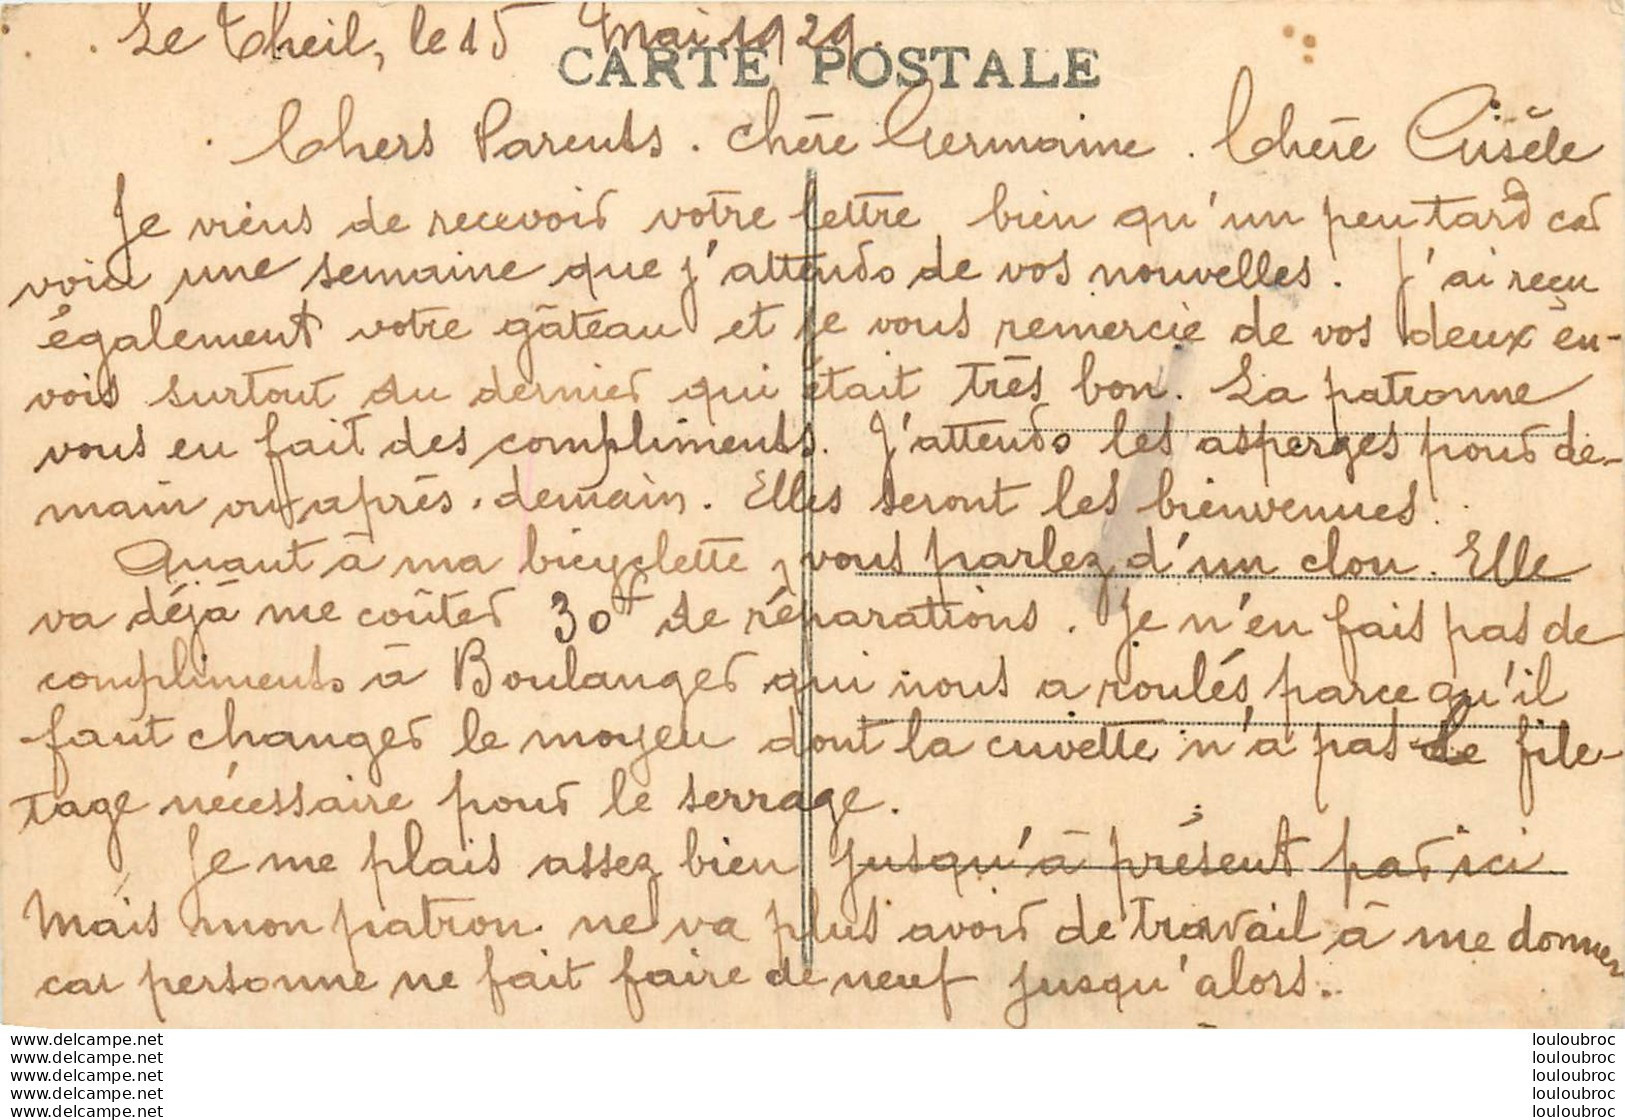 Le Theil, le 15 Mai 1929.
CARTE POSTALE
Chers Parents. Chère Germaine. Chère Gisèle
Je viens de recevoir votre lettre bien qu'un peu tard car
voici une semaine que j'attends de vos nouvelles. J'ai reçu
également votre gâteau et je vous remercie de vos deux en-
vois surtout du dernier qui était très bon. La patronne
vous en fait des compliments. J'attends les asperges pour de-
main ou après-demain. Elles seront les bienvenues.
Quant à ma bicyclette, vous parlez d'un clou. Elle
va déjà me coûter 30f de réparations. Je n'en fais pas de
compliments à Boulanger qui nous a roulés parce qu'il
faut changer le moyeu dont la cuvette n'a pas le file-
tage nécessaire pour le serrage.
Je me plais assez bien jusqu'à présent par ici
Mais mon patron ne va plus avoir de travail à me donner
car personne ne fait faire de neuf jusqu'alors.
louloubroc.net.ec louloubroc
louloubroc.net.ec louloubroc
louloubroc.net.ec louloubroc
louloubroc.net.ec louloubroc
louloubroc.net.ec louloubroc